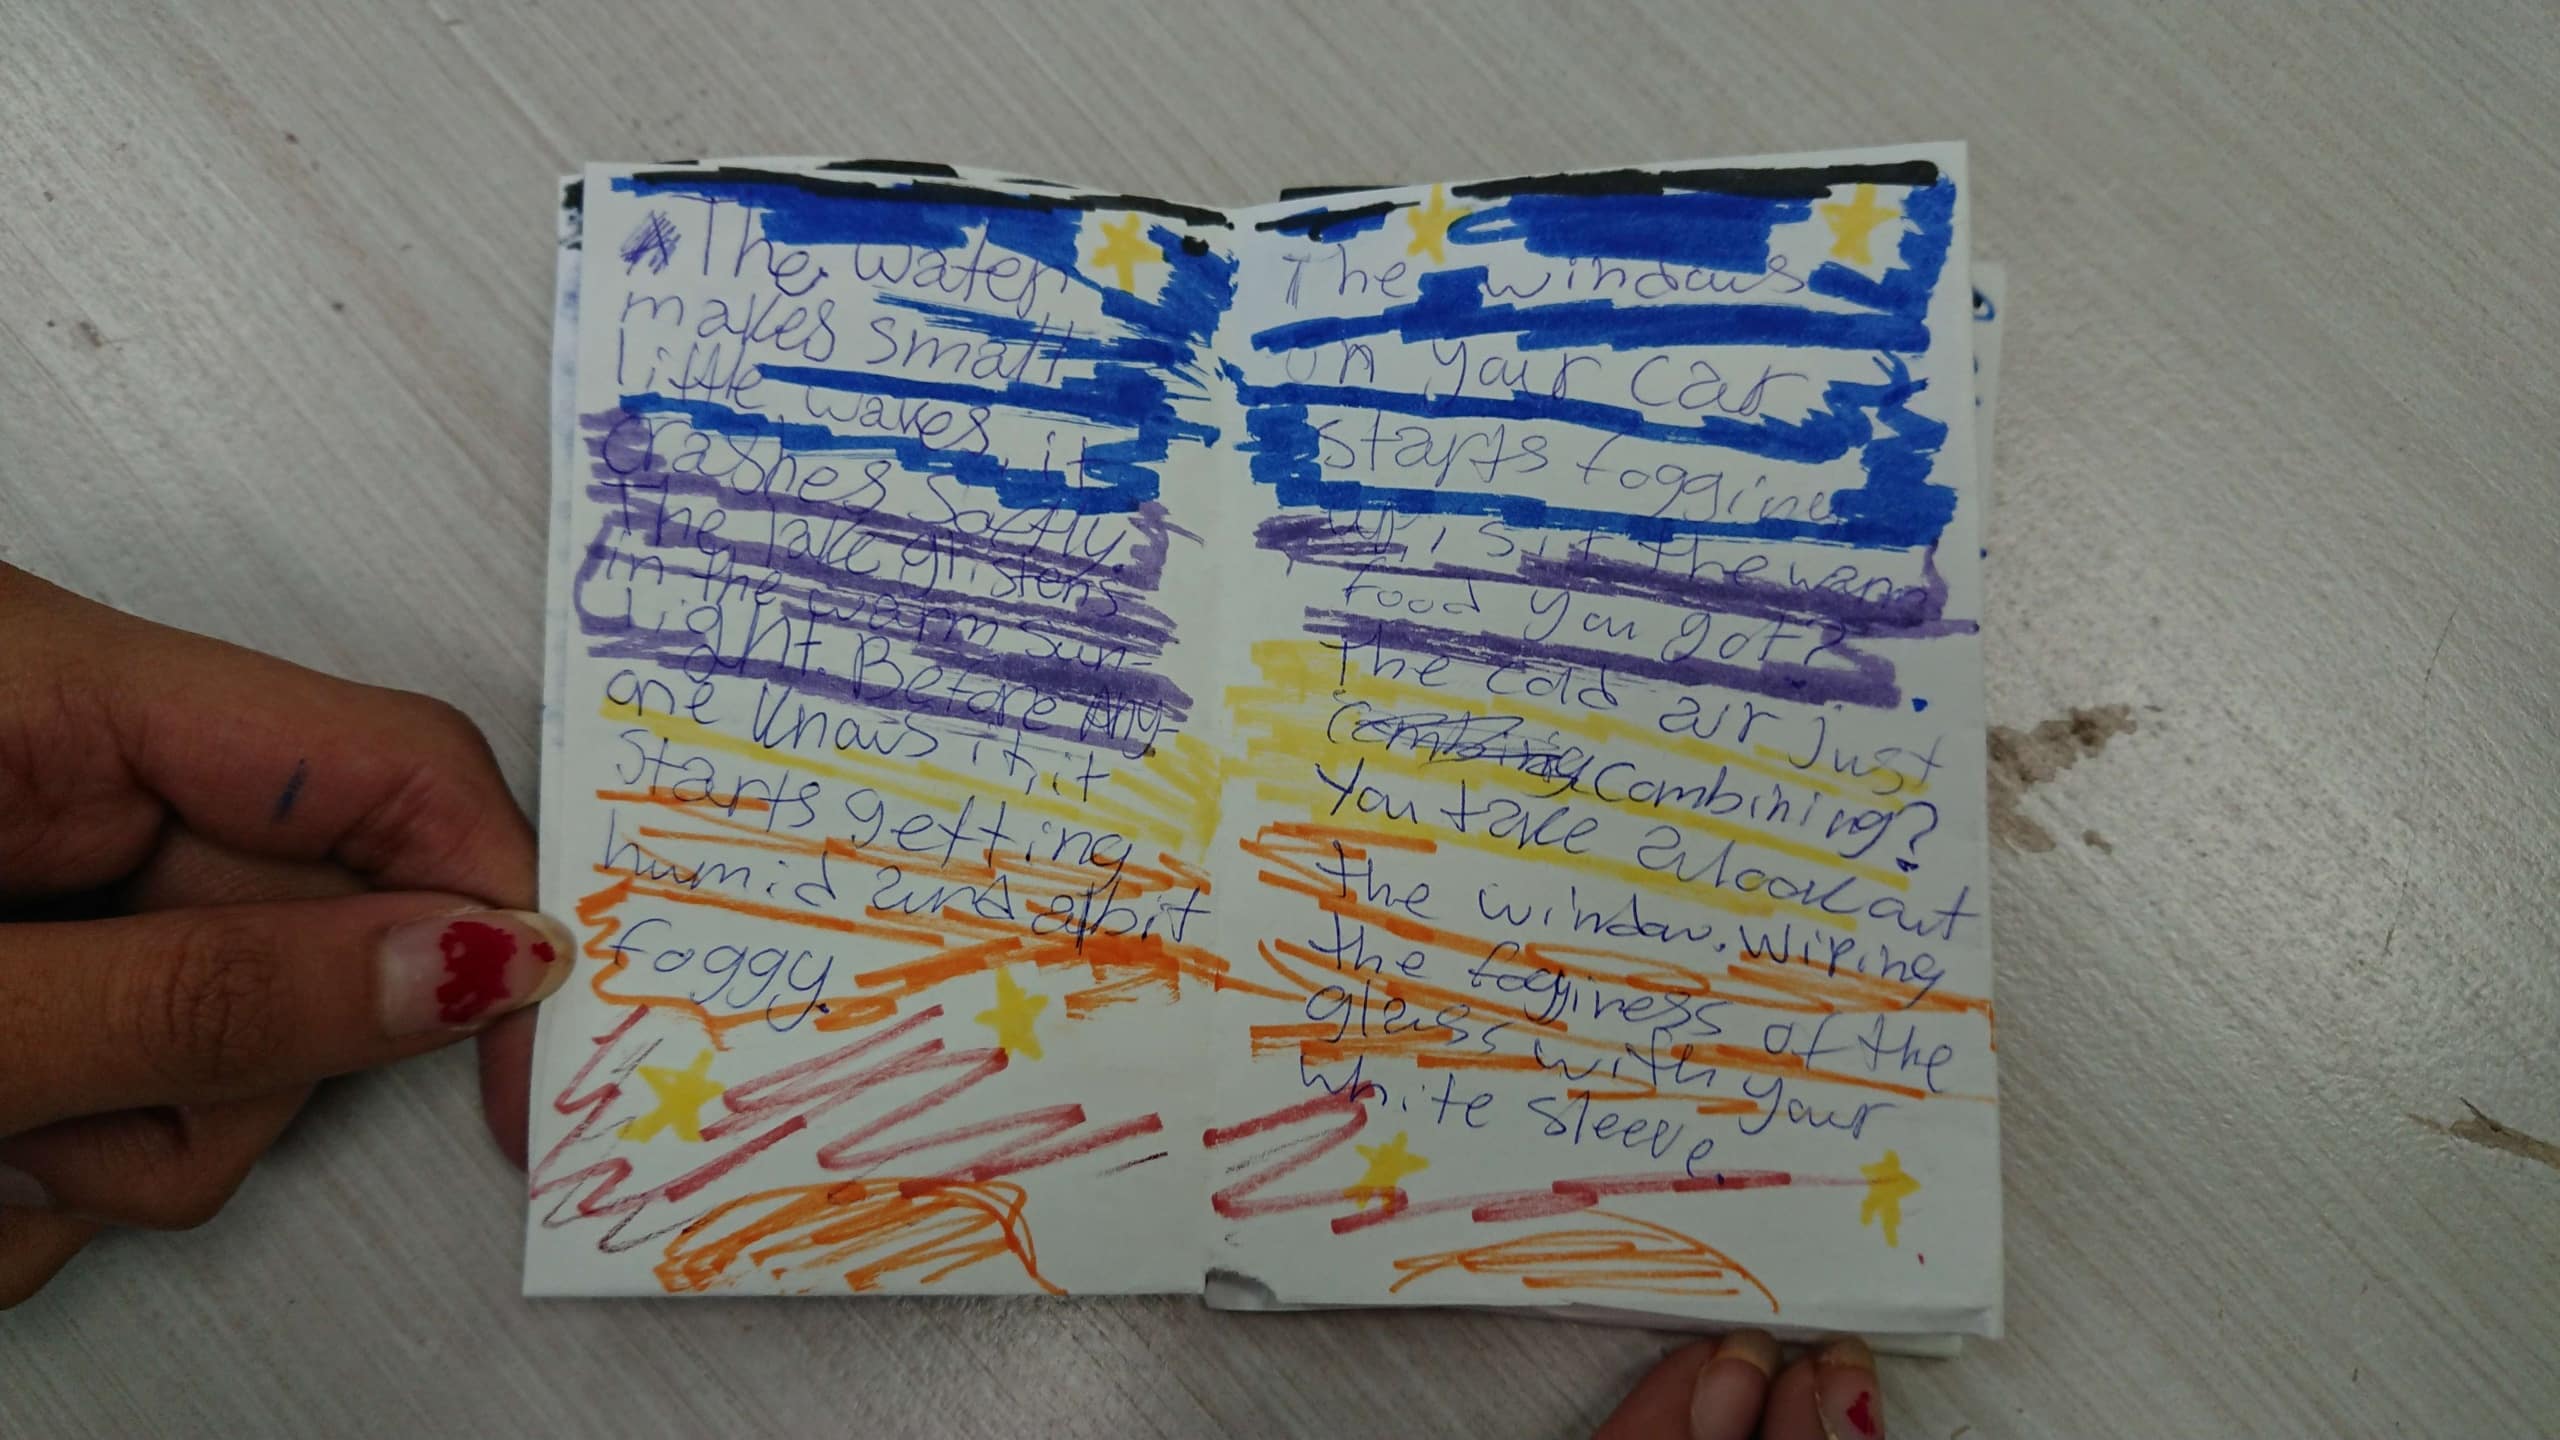 The water
makes small
little waves, it
crashes softly.
The lake glistens
in the warm sun-
light. Before Any-
one knows it, it
starts getting
humid and a bit
foggy.
The windows
on your car
starts fogging
up, is it the warm
food you got?
The cold air just
combining?
You take a look out
the window. Wiping
the fogginess of the
glass with your
white sleeve.